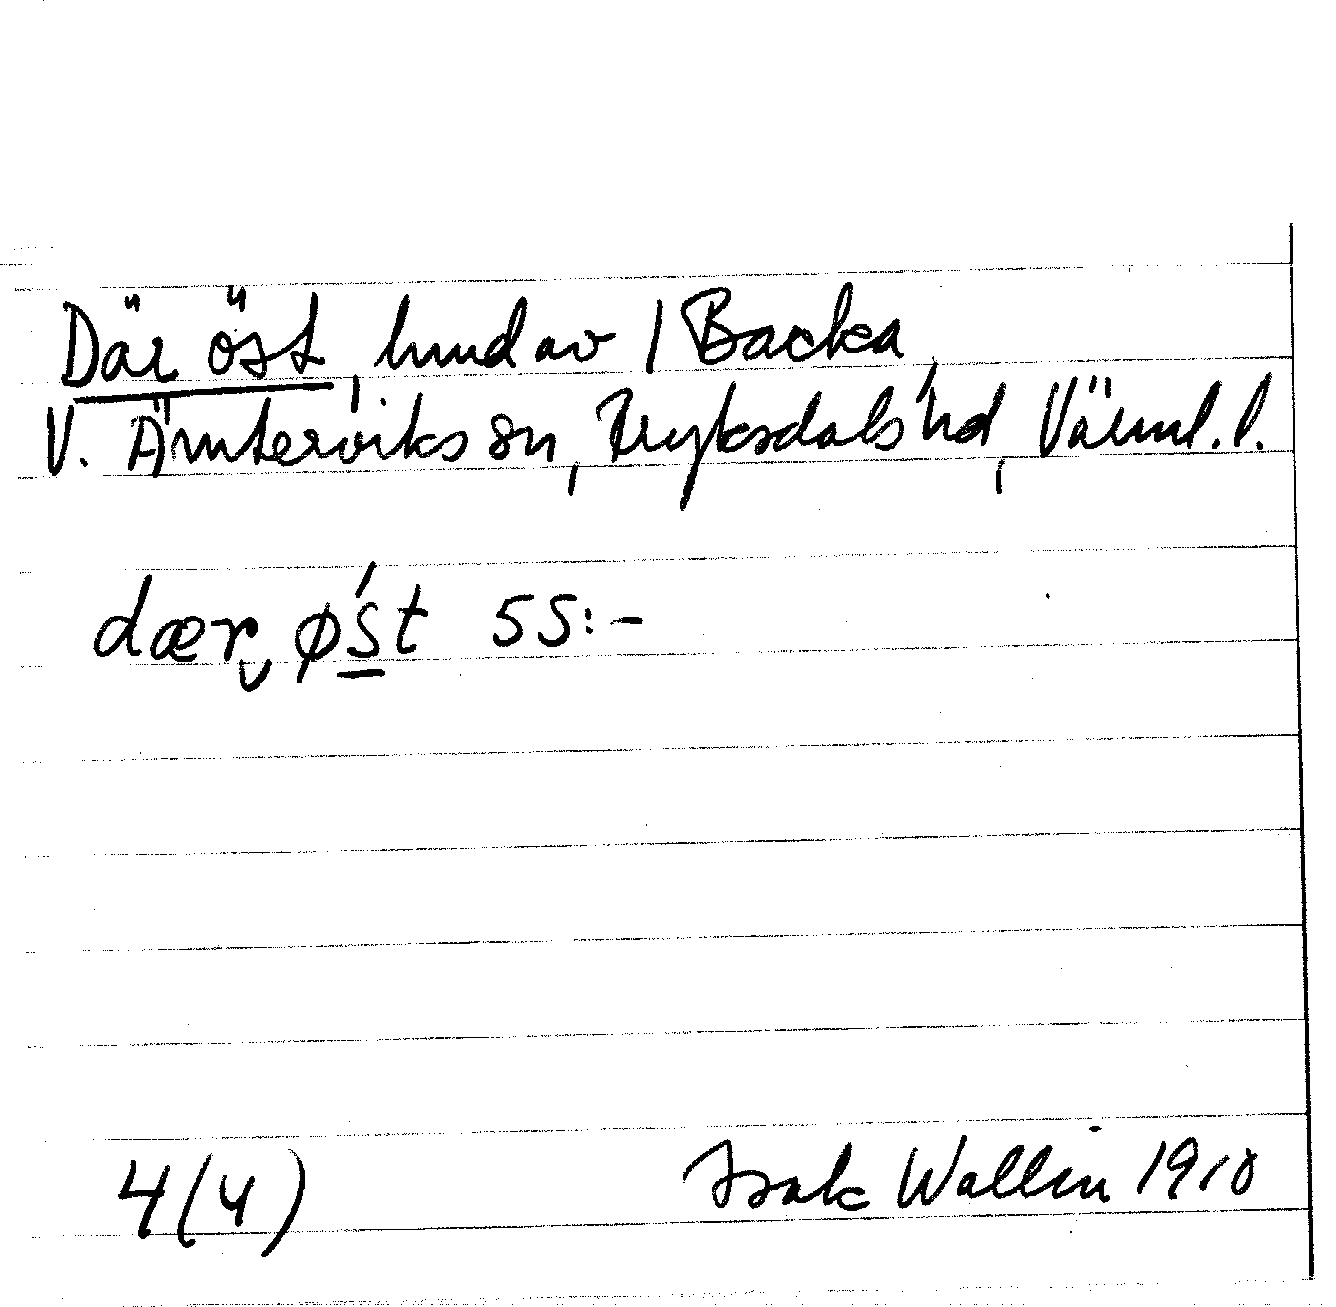 Där öst, hmd av 1 Backa,
V. Ämterviks sn, Fryksdals hd, Värml. l.
dær øst 55:-
4(4)
Isak Wallin 1910